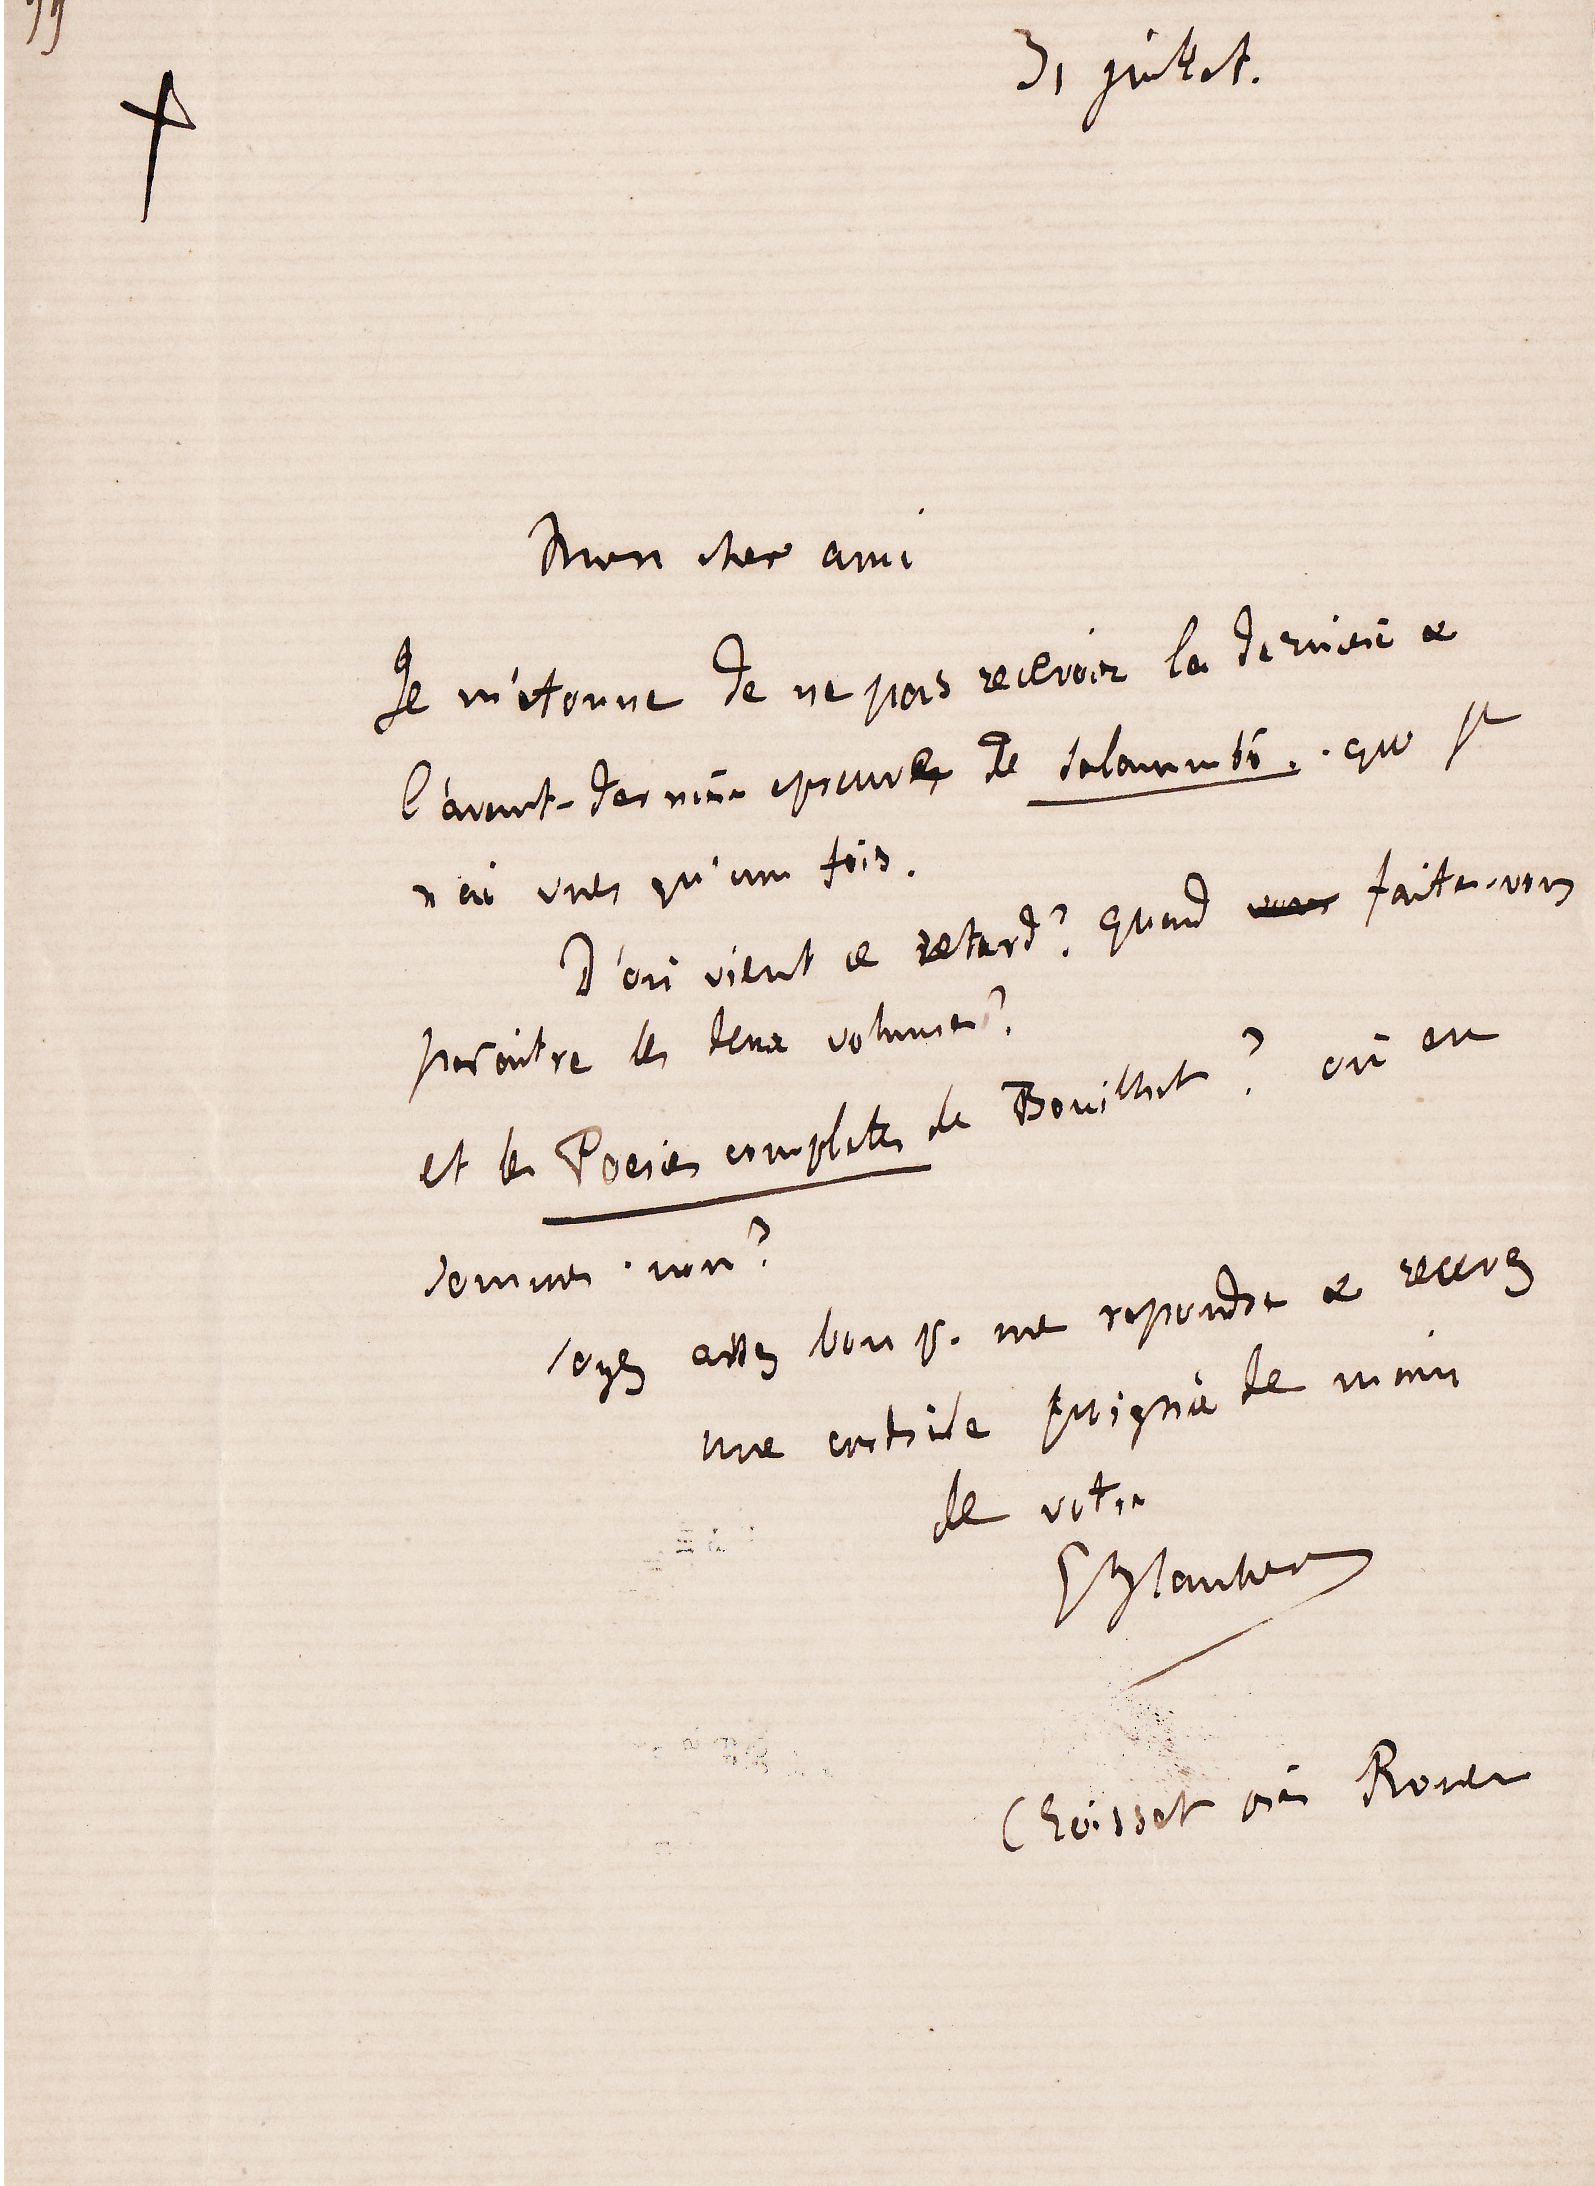 31 juillet.
Mon cher ami
Je m'étonne de ne pas recevoir la dernière &
l'avant-dernière epreuves de Salammbô. que je
n'ai vues qu'une fois.
D'où vient ce retard? quand vous faites-vous
paraître les deux volumes?
et les Poesies complètes de Bouilhet? où en
sommes-nous?
soyez assez bon pr. me repondre & recevez
une cordiale poignée de main
de votre
G Flaubert
Croisset près Rouen